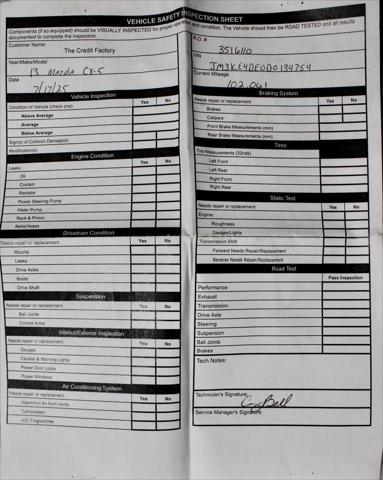 VEHICLE SAFETY INSPECTION SHEET
Components (if so equipped) should be VISUALLY INSPECTED for proper operation and condition. The Vehicle should then be ROAD TESTED and all results
documented to complete the inspection.
Customer Name:
The Credit Factory
Year/Make/Model
13 Mazda CX-5
Date
7/17/25
R.O. #
3516110
VIN
JM3KE4DE0D0134754
Current Mileage
102,061
Vehicle Inspection
Condition of Vehicle (check one)
Yes No
Above Average
Average
Below Average
Sign(s) of Collision Damage(s)
Modification(s)
Engine Condition
Leaks
Yes No
Oil
Coolant
Radiator
Power Steering Pump
Water Pump
Rack & Pinion
Belts/Hoses
Drivetrain Condition
Needs repair or replacement:
Yes No
Mounts
Leaks
Drive Axles
Boots
Drive Shaft
Suspension
Needs repair or replacement:
Yes No
Ball Joints
Control Arms
Interior/Exterior Inspection
Needs repair or replacement:
Yes No
Gauges
Caution & Warning Lights
Power Door Locks
Power Windows
Air Conditioning System
Needs repair or replacement:
Yes No
Warm/Hot Air from Vents
Compressor
A/C Programmer
Braking System
Needs repair or replacement:
Yes No
Brakes
Calipers
Front Brake Measurements (mm)
Rear Brake Measurements (mm)
Tires
Tire Measurements (32nds)
Left Front
Left Rear
Right Front
Right Rear
Static Test
Needs repair or replacement:
Yes No
Engine:
Roughness
Gauges/Lights
Transmission Shift
Forward Needs Repair/Replacement
Reverse Needs Repair/Replacement
Road Test
Pass Inspection
Performance
Exhaust
Transmission
Drive Axle
Steering
Suspension
Ball Joints
Brakes
Tech Notes:
Technician's Signature:
Service Manager's Signature: